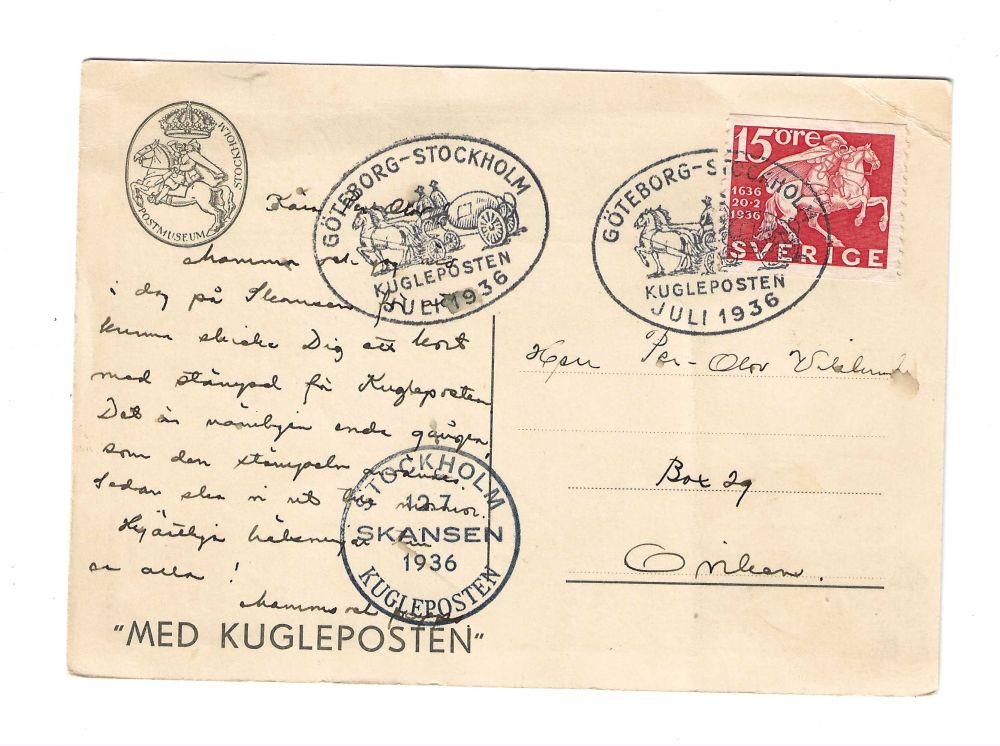 POSTMUSEUM STOCKHOLM
GÖTEBORG-STOCKHOLM
KUGLEPOSTEN
JULI 1936
GÖTEBORG-STOCKHOLM
KUGLEPOSTEN
JULI 1936
15 öre
1636
20·2
1936
SVERIGE
Kära Per Olov
Mamma och
i dag på Skansen för att
kunna skicka Dig ett kort
med stämpel från Kugleposten
Det är nämligen enda gången
som den stämpeln användes.
Sedan ska vi ut till
Hjärtliga hälsningar
av alla!
Mamma och pappa
STOCKHOLM
12.7.
SKANSEN
1936
KUGLEPOSTEN
"MED KUGLEPOSTEN"
Herr Per-Olov
Box 29